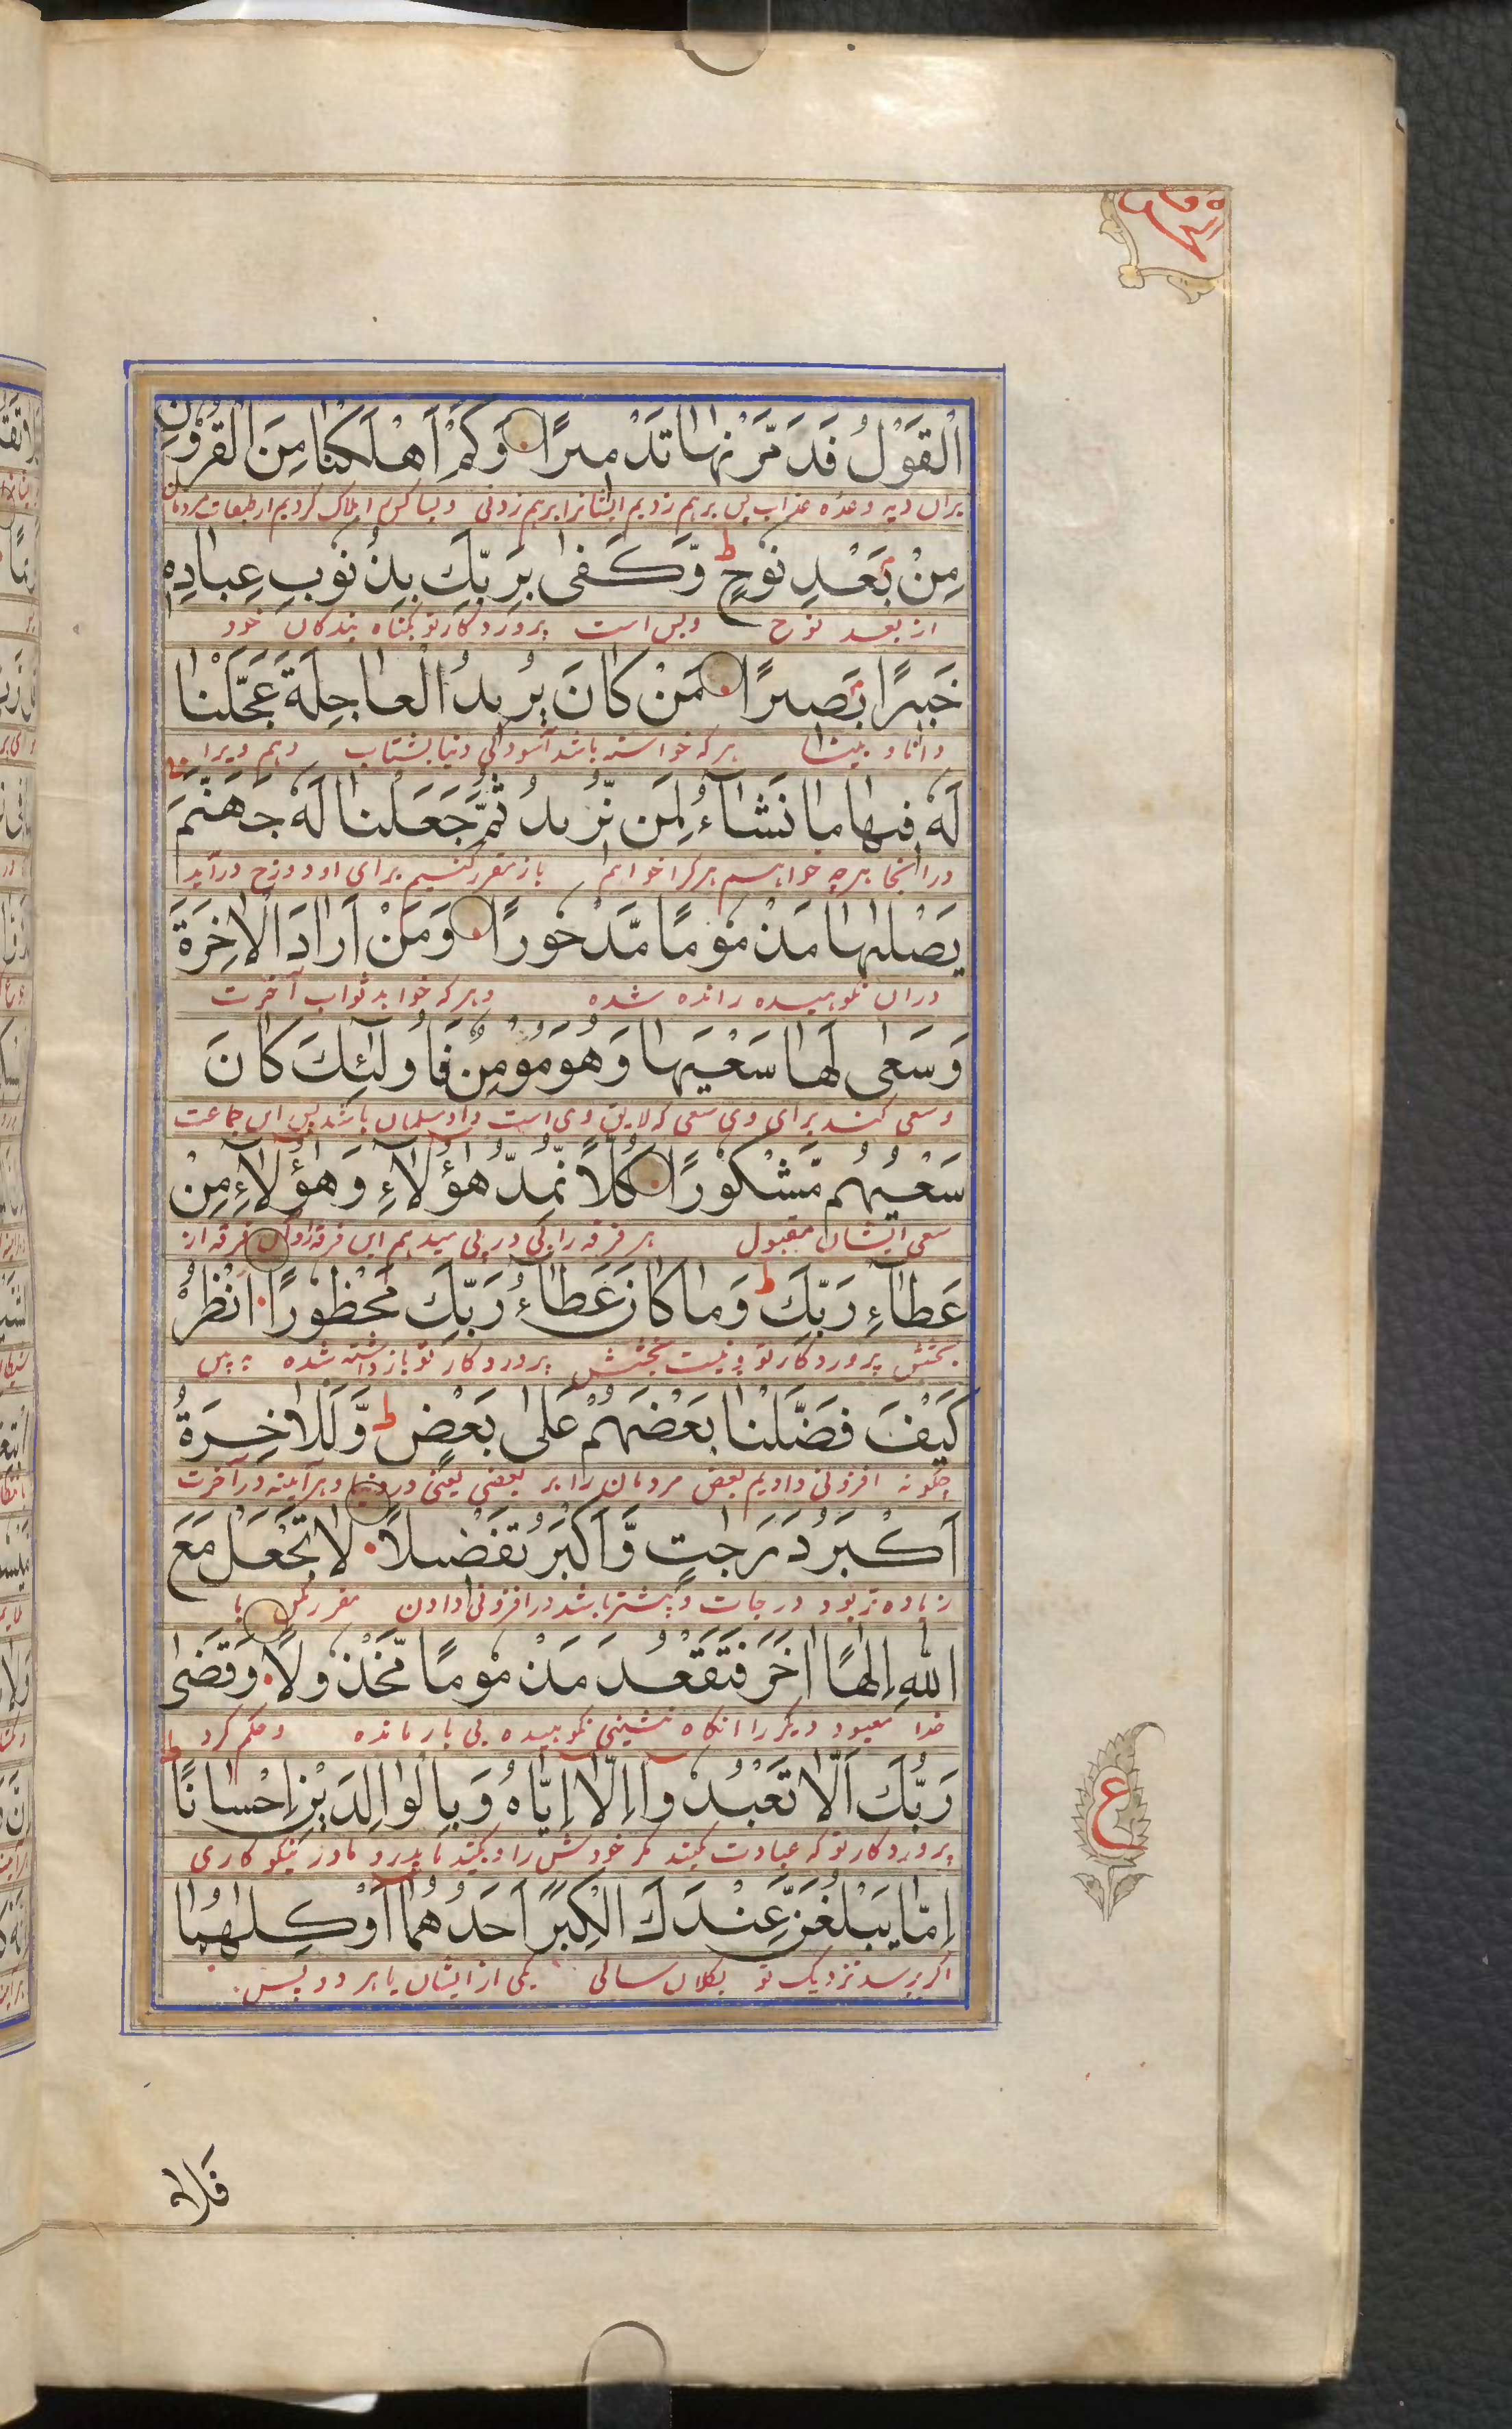 الْقَوْلُ فَدَمَّرْنٰهَا تَدْمِيرًا وَكَمْ اَهْلَكْنَا مِنَ الْقُرُونِ
بران دیه وعده عذاب پس برهم زدیم ایشانرا برهم زدنی وبسا کس را هلاک کردیم از طبقات مردمان
مِنْ بَعْدِ نُوحٍ ط وَّكَفٰى بِرَبِّكَ بِذُنُوبِ عِبَادِهٖ
از بعد نوح وبس است پروردکار تو بکناه بندکان خود
خَبِيرًا بَصِيرًا مَنْ كَانَ يُرِيدُ الْعَاجِلَةَ عَجَّلْنَا
دانا و بینا هرکه خواسته باشد آسودکی دنیا بشتاب دهم ویرا
لَهٗ فِيهَا مَا نَشَآءُ لِمَن نُّرِيدُ ثُمَّ جَعَلْنَا لَهٗ جَهَنَّمَ
در اینجا هرچه خواهیم هرکرا خواهم باز مقرر کنیم برای او دوزخ درآید
يَصْلٰىهَا مَذْمُومًا مَّدْحُورًا وَمَنْ اَرَادَ الْاٰخِرَةَ
دران نکوهیده رانده شده وهرکه خواهد ثواب آخرت
وَسَعٰى لَهَا سَعْيَهَا وَهُوَ مُؤْمِنٌ فَاُولٰئِكَ كَانَ
وسعی کند برای وی سعی که لایق وی است واو مسلمان باشد پس این جماعت
سَعْيُهُم مَّشْكُورًا كُلًّا نُّمِدُّ هٰٓؤُلَآءِ وَهٰٓؤُلَآءِ مِنْ
سعی ایشان مقبول هر فرقه را پی در پی میدهیم این فرقه را وآن فرقه از
عَطَآءِ رَبِّكَ ط وَمَا كَانَ عَطَآءُ رَبِّكَ مَحْظُورًا اُنْظُرْ
بخشش پروردکار تو ونیست بخشش پروردکار تو بازداشته شده به بین
كَيْفَ فَضَّلْنَا بَعْضَهُمْ عَلٰى بَعْضٍ ط وَّلَلْاٰخِرَةُ
چکونه افزونی دادیم بعض مردمان را بر بعضی یعنی در دنیا وهرآینه در آخرت
اَكْبَرُ دَرَجٰتٍ وَّاَكْبَرُ تَفْضِيلًا لَا تَجْعَلْ مَعَ
زیاده تر بود درجات وبیشتر باشد در افزونی دادن مقرر مکن با
اللّٰهِ اِلٰهًا اٰخَرَ فَتَقْعُدَ مَذْمُومًا مَّخْذُولًا وَقَضٰى
خدا معبود دیکر را انکاه بنشینی نکوهیده بی یار مانده وحکم کرد
رَبُّكَ اَلَّا تَعْبُدُوٓا اِلَّآ اِيَّاهُ وَبِالْوَالِدَيْنِ اِحْسَانًا ط
پروردکار تو که عبادت مکنید مکر خودش را وبکنید با پدر و مادر نیکوکاری
اِمَّا يَبْلُغَنَّ عِنْدَكَ الْكِبَرَ اَحَدُهُمَآ اَوْ كِلٰهُمَا
اکر برسد نزدیک تو بکلان سالی یکی از ایشان یا هر دو پس
ع
فَلَا